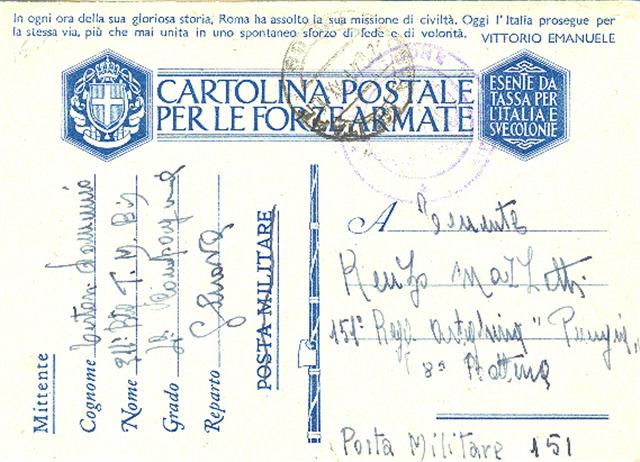 In ogni ora della sua gloriosa storia, Roma ha assolto la sua missione di civiltà. Oggi l'Italia prosegue per
la stessa via, più che mai unita in uno spontaneo sforzo di fede e di volontà. VITTORIO EMANUELE
CARTOLINA POSTALE
PER LE FORZE ARMATE
ESENTE DA
TASSA PER
L'ITALIA E
SVE COLONIE
Mittente
Cognome
Nome T. M. Bis
Grado Compagnia
Reparto
POSTA MILITARE
A Tenente
Renzo Mazzetti
Regg. Artiglieria
8a Batteria
Posta Militare 151